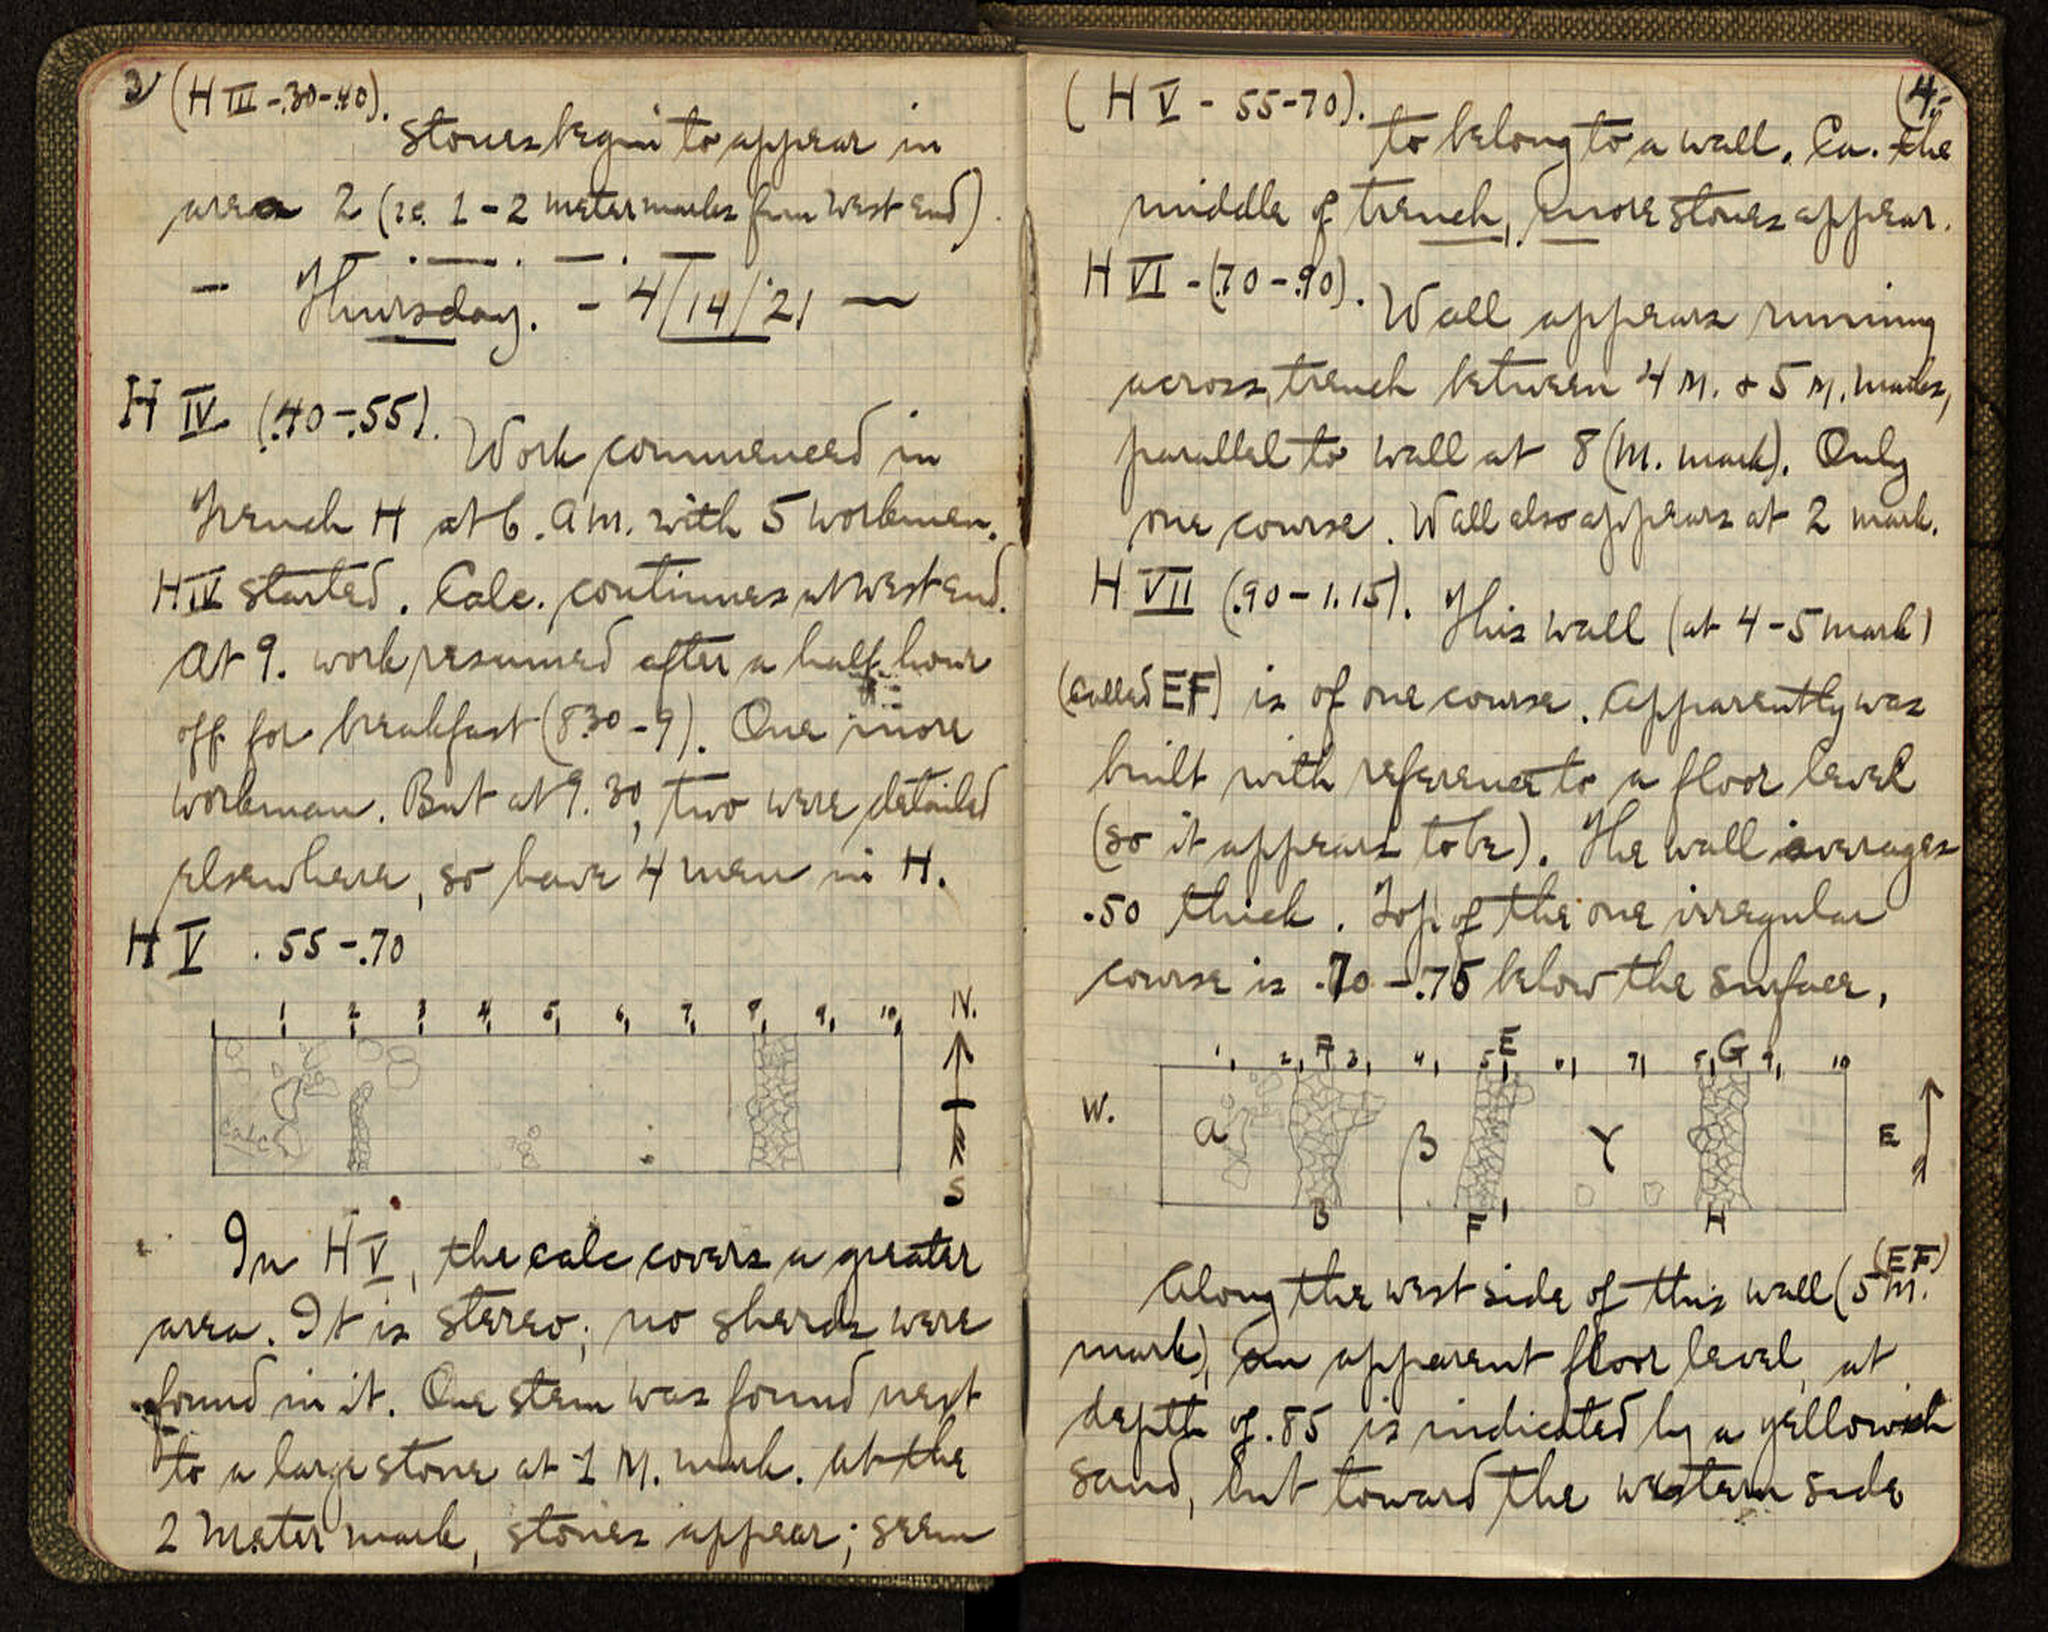 3/ (H III - .30-.40).
stones begin to appear in
area 2 (i.e. 1 - 2 meter marks from West End).
- Thursday. - 4/14/'21 -
H IV (.40-.55).
Work commenced in
Trench H at 6. A.M. with 5 workmen.
H IV started. Calc. continues at West End.
At 9. work resumed after a half hour
off for breakfast (8.30 - 9). One more
workman. But at 9.30, two were detailed
elsewhere, so have 4 men in H.
H V .55-.70
1 2 3 4 5 6 7 8 9 10 N.
calc
S
In H V, the calc covers a greater
area. It is stereo; no sherds were
found in it. One stem was found next
to a large stone at 1 M. mark. At the
2 Meter mark, stones appear; seem
(H V - 55-70). (4.
to belong to a wall. Ca. the
middle of trench, more stones appear.
H VI - (.70 - .90).
Wall appears running
across trench between 4 M. & 5 M. marks,
parallel to wall at 8 (M. mark). Only
one course. Wall also appears at 2 mark.
H VII (.90 - 1.15).
This wall (at 4 - 5 mark)
(called EF) is of one course. Apparently was
built with reference to a floor level
(so it appears to be). The wall averages
.50 thick. Top of the one irregular
course is .70 - .75 below the surface.
1 2 A 3 4 5 E 6 7 8 G 9 10
W. a β γ E
B F H
Along the west side of this wall (5 M.
(EF)
mark), an apparent floor level, at
depth of .85 is indicated by a yellowish
sand, but toward the western side